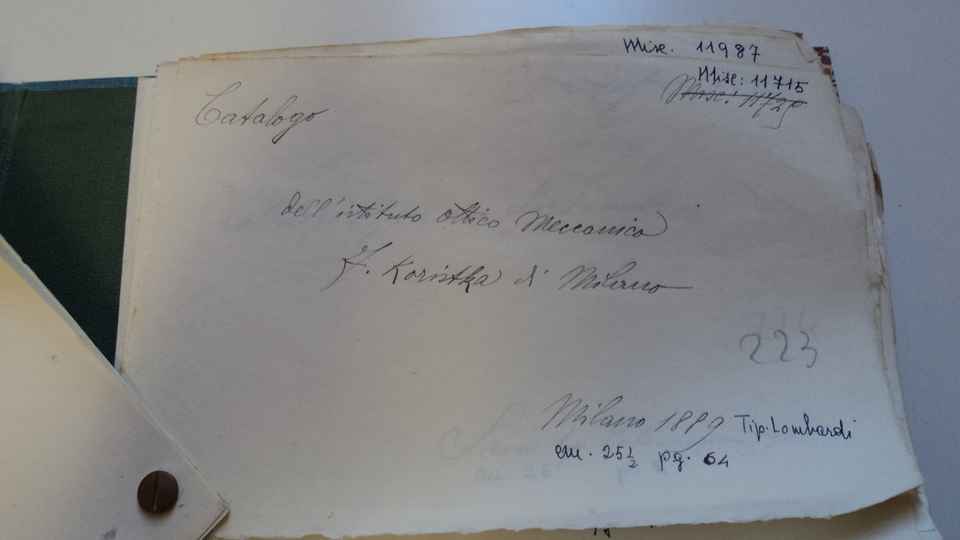 Misc. 11987
Misc: 11715
Misc:
Catalogo
dell'istituto ottico Meccanico
F. Koristka di Milano
223
Milano 1889 Tip. Lombardi
cm. 25½ pg. 64